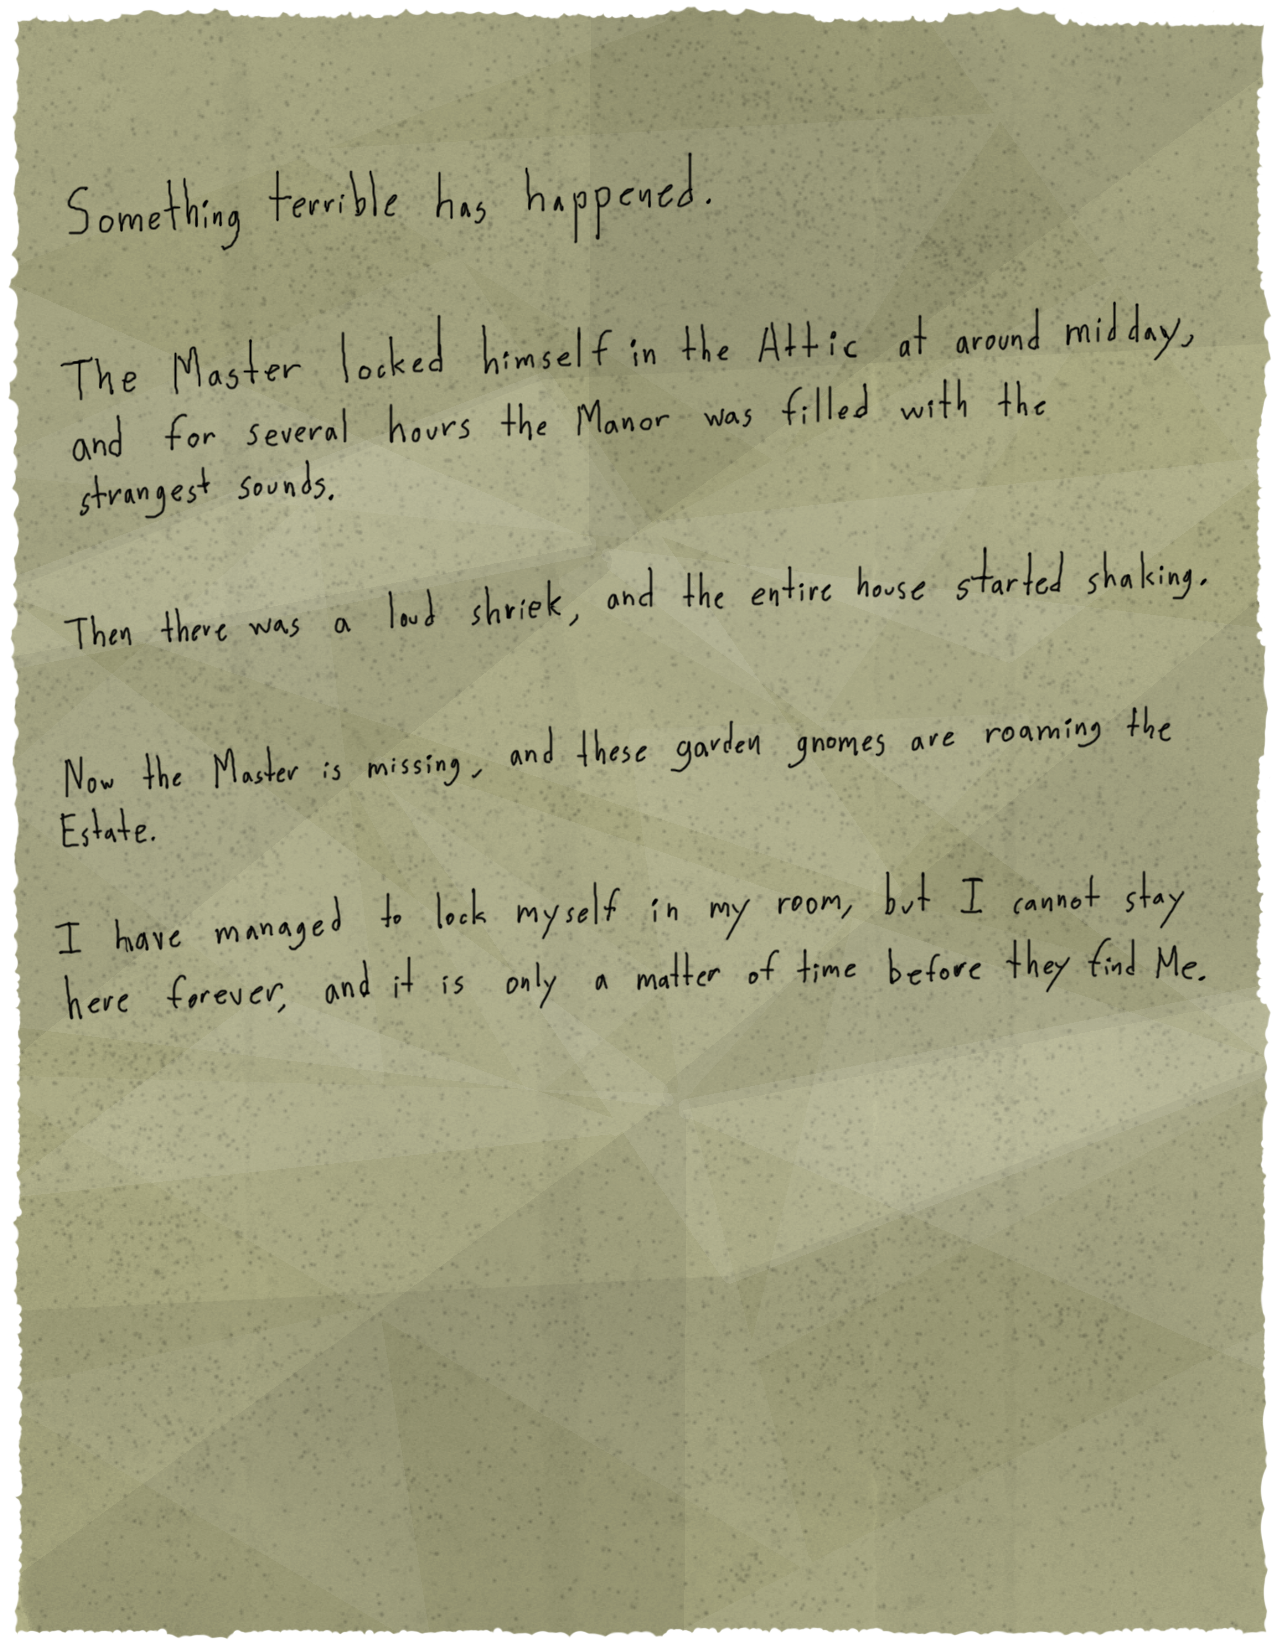 Something terrible has happened.
The Master locked himself in the Attic at around midday,
and for several hours the Manor was filled with the
strangest sounds.
Then there was a loud shriek, and the entire house started shaking.
Now the Master is missing, and these garden gnomes are roaming the
Estate.
I have managed to lock myself in my room, but I cannot stay
here forever, and it is only a matter of time before they find Me.